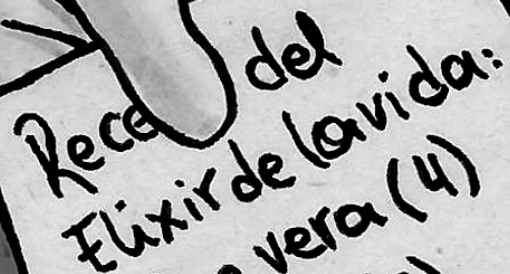 Rece del
Elixir de la vida:
vera (4)